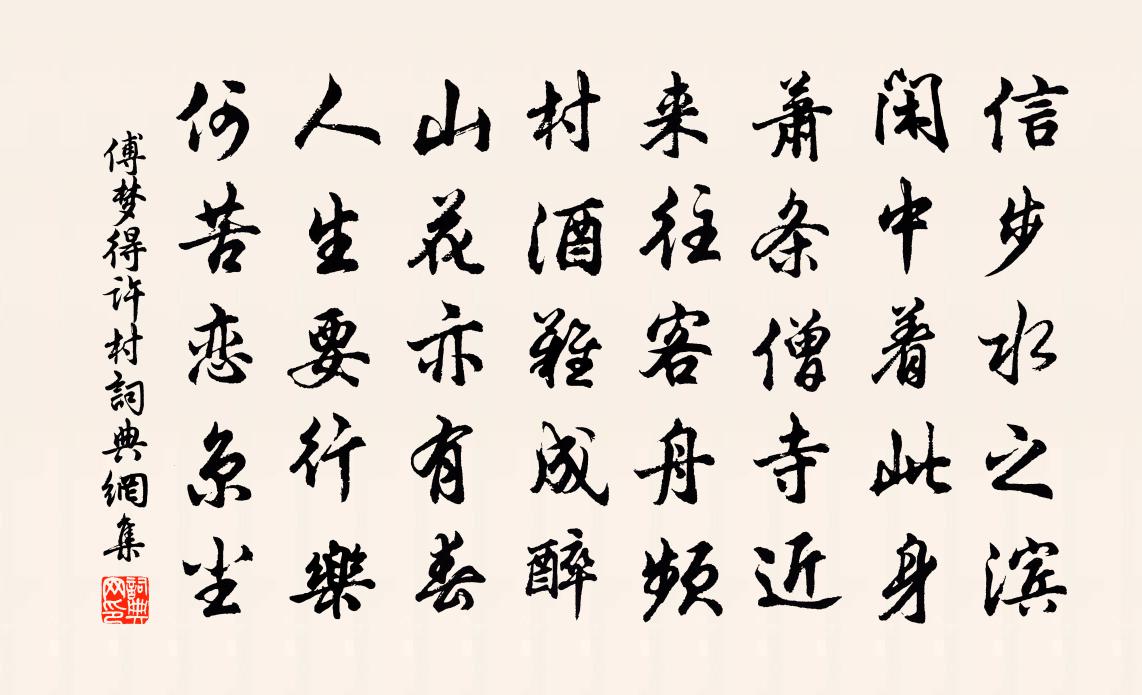 信步水之滨
闲中着此身
萧条僧寺近
来往客舟频
村酒难成醉
山花亦有春
人生要行樂
何苦恋京尘
傅梦得许村詞典網集
詞典网印